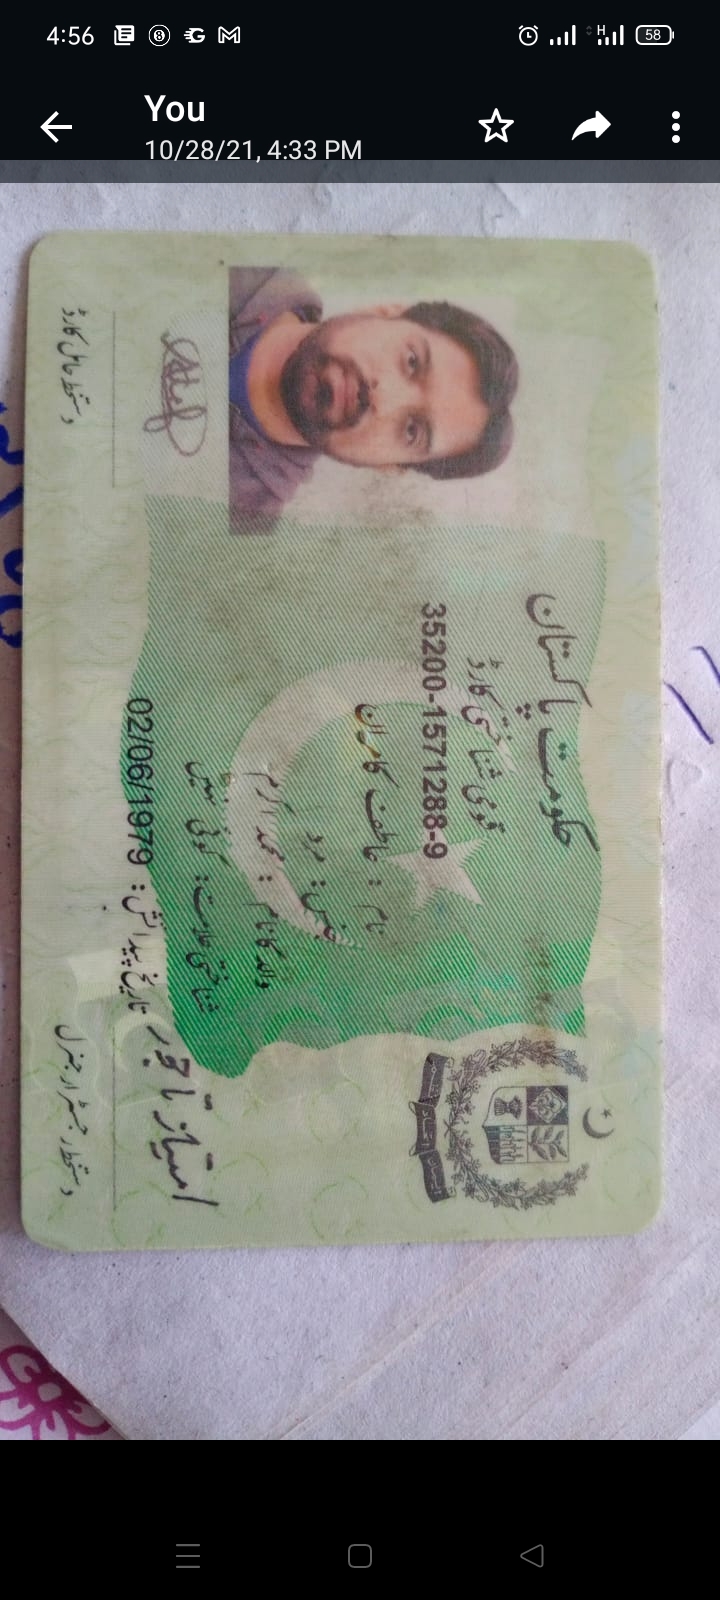 4:56
58
You
10/28/21, 4:33 PM
حکومت پاکستان
قومی شناختی کارڈ
35200-1571288-9
نام : عاطف کامران
جنس : مرد
والد کا نام : محمد اکرم
شناختی علامت : کوئی نہیں
تاریخ پیدائش : 02/06/1979
امتیاز تاجور
دستخط رجسٹرار جنرل
Atif
دستخط حامل کارڈ